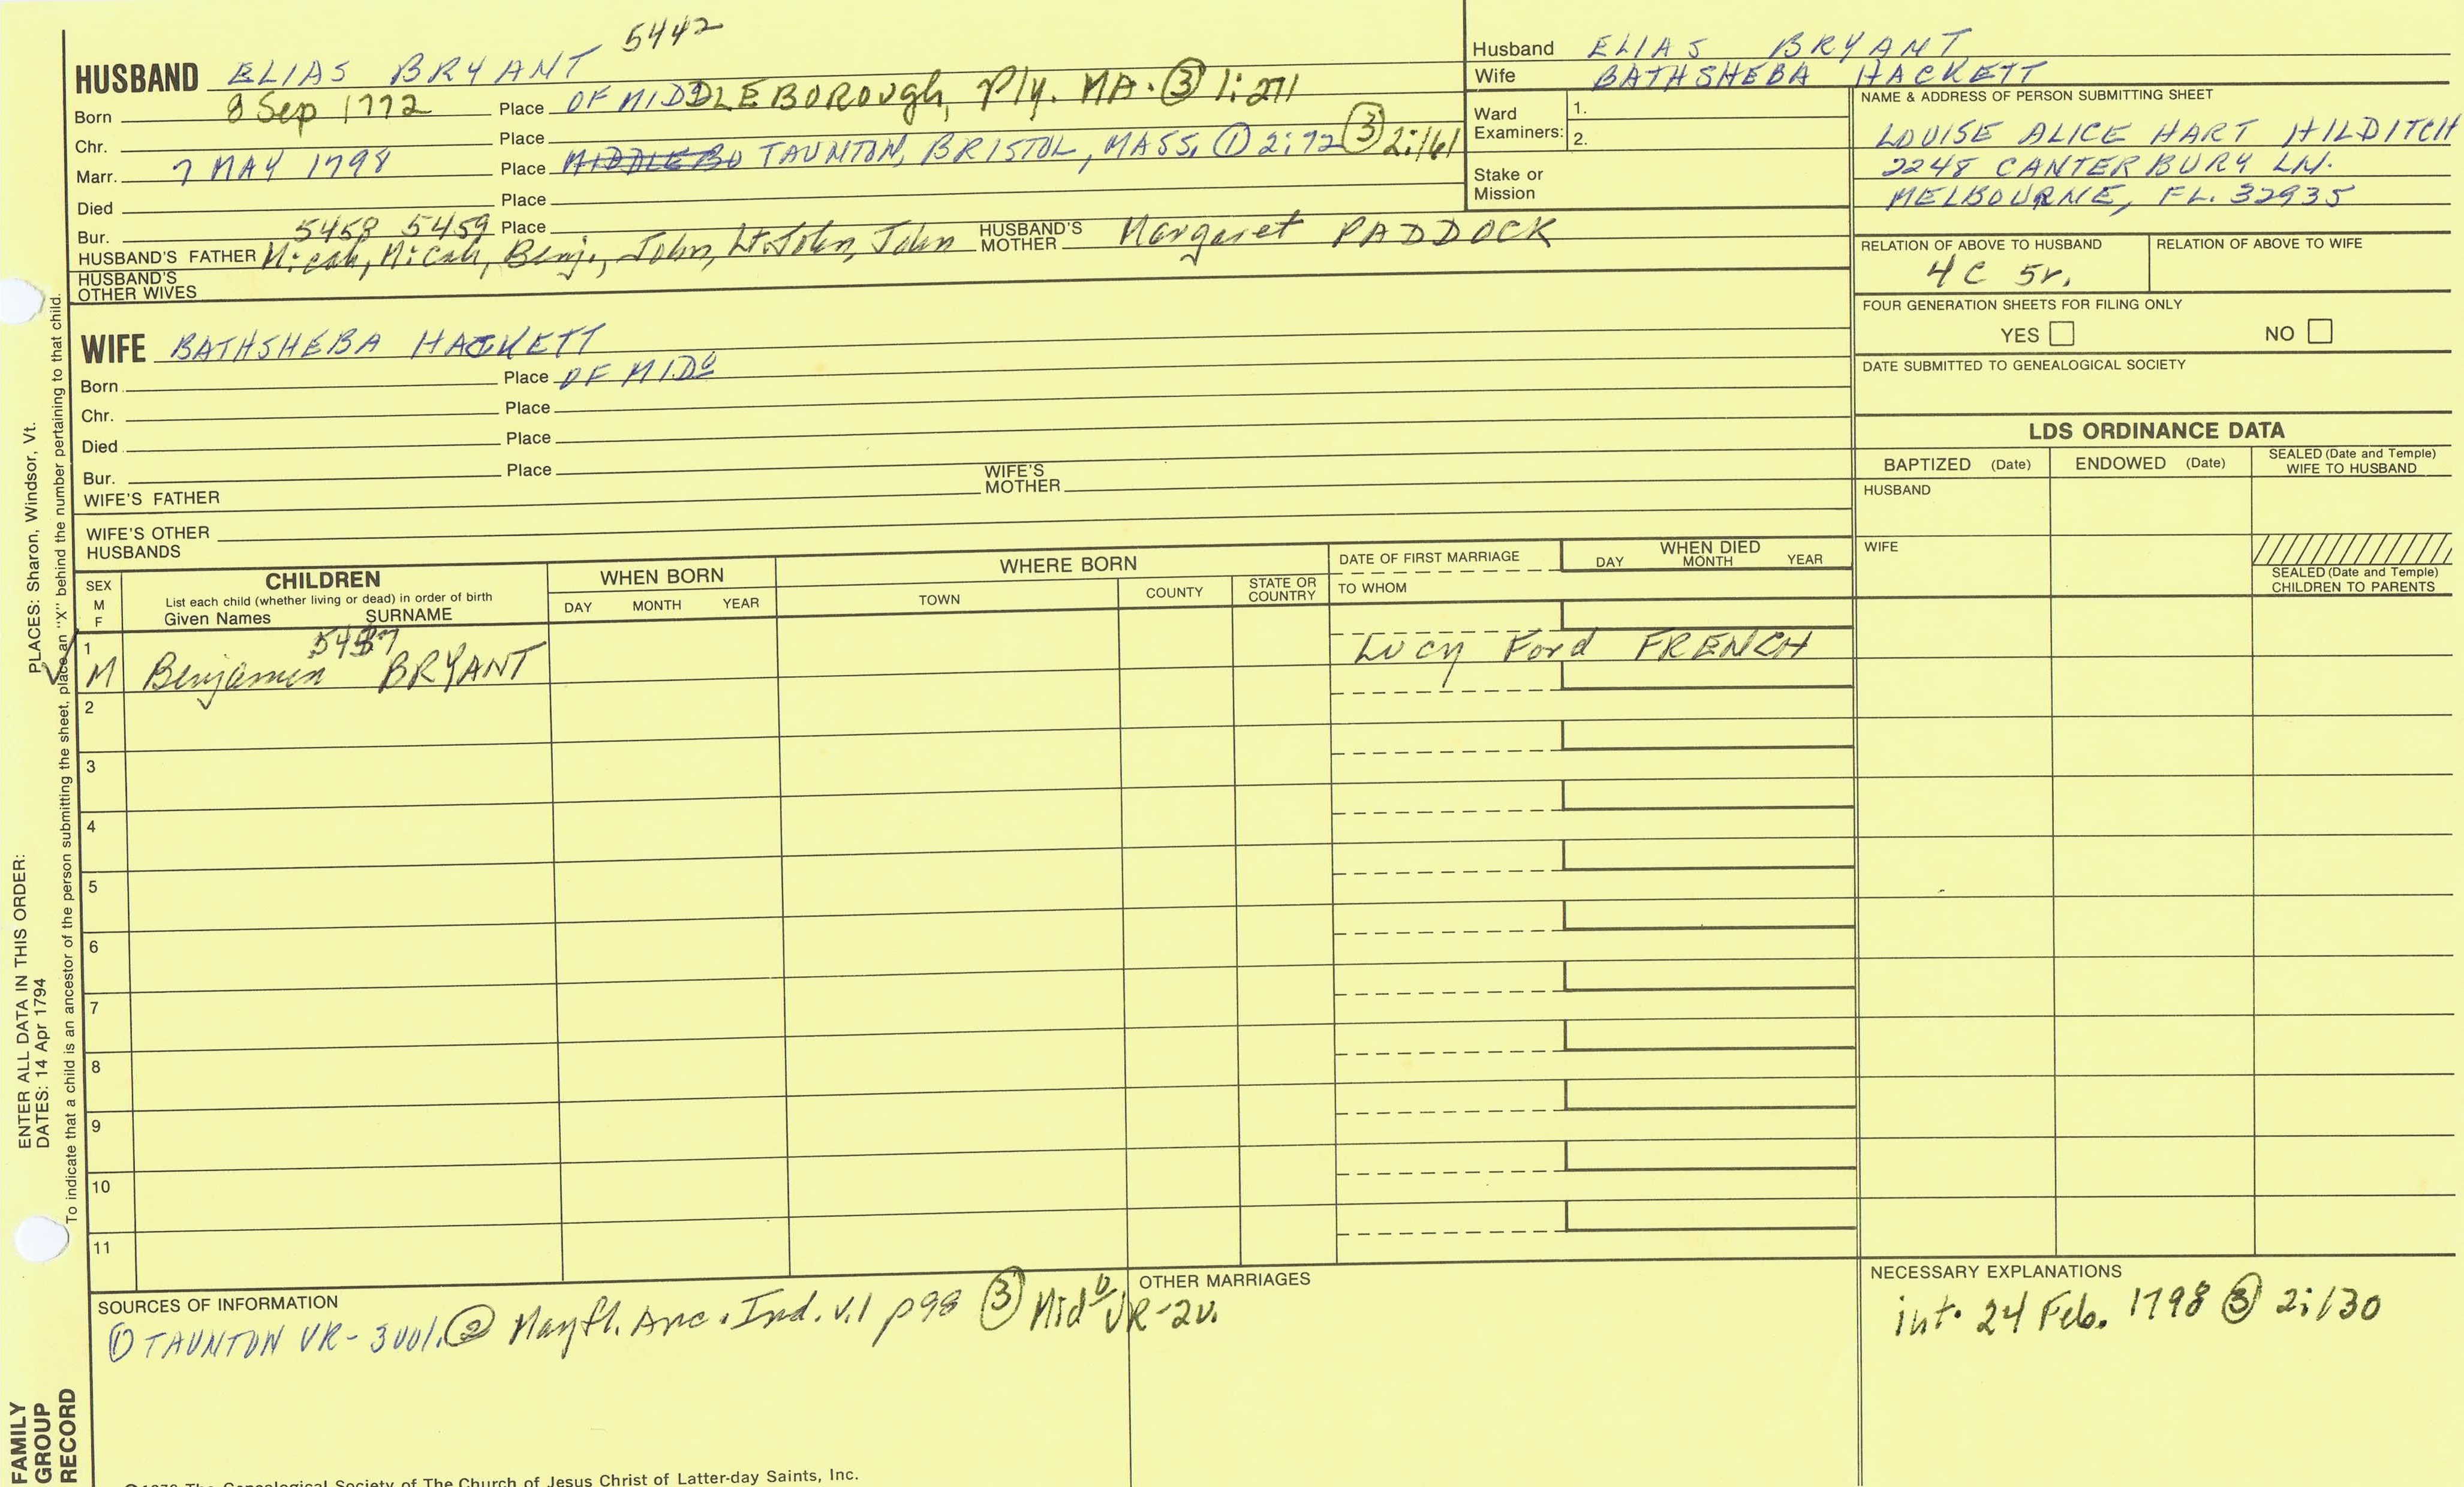 5442
HUSBAND ELIAS BRYANT
Born 8 Sep 1772 Place OF MIDDLEBOROUGH, Ply. MA. ③ 1:271
Chr. Place
Marr. 7 MAY 1798 Place MIDDLEBO TAUNTON, BRISTOL, MASS, ① 2:72 ③ 2:161
Died Place
Bur. 5458 5459 Place
HUSBAND'S FATHER Micah, Micah, Benj., John, Lt. John, John HUSBAND'S MOTHER Margaret PADDOCK
HUSBAND'S OTHER WIVES
WIFE BATHSHEBA HACKETT
Born Place OF MIDº
Chr. Place
Died Place
Bur. Place
WIFE'S FATHER WIFE'S MOTHER
WIFE'S OTHER HUSBANDS
Husband ELIAS BRYANT
Wife BATHSHEBA HACKETT
Ward Examiners: 1.
2.
Stake or Mission
NAME & ADDRESS OF PERSON SUBMITTING SHEET
LOUISE ALICE HART HILDITCH
2248 CANTERBURY LN.
MELBOURNE, FL. 32935
RELATION OF ABOVE TO HUSBAND RELATION OF ABOVE TO WIFE
4 C 5r.
FOUR GENERATION SHEETS FOR FILING ONLY
YES NO
DATE SUBMITTED TO GENEALOGICAL SOCIETY
LDS ORDINANCE DATA
BAPTIZED (Date) ENDOWED (Date) SEALED (Date and Temple) WIFE TO HUSBAND
HUSBAND
WIFE
SEALED (Date and Temple) CHILDREN TO PARENTS
SEX M F
CHILDREN
List each child (whether living or dead) in order of birth
Given Names SURNAME
WHEN BORN
DAY MONTH YEAR
WHERE BORN
TOWN COUNTY STATE OR COUNTRY
DATE OF FIRST MARRIAGE
TO WHOM
WHEN DIED
DAY MONTH YEAR
1
M Benjamin BRYANT Lucy Ford FRENCH
2
3
4
5
6
7
8
9
10
11
SOURCES OF INFORMATION
① TAUNTON VR-3vol. ② Mayfl. Anc. Ind. v.1 p98 ③ Midº VR-2v.
OTHER MARRIAGES
NECESSARY EXPLANATIONS
int. 24 Feb. 1798 ③ 2:130
PLACES: Sharon, Windsor, Vt.
To indicate that a child is an ancestor of the person submitting the sheet, place an "X" behind the number pertaining to that child.
ENTER ALL DATA IN THIS ORDER:
DATES: 14 Apr 1794
FAMILY GROUP RECORD
The Genealogical Society of The Church of Jesus Christ of Latter-day Saints, Inc.